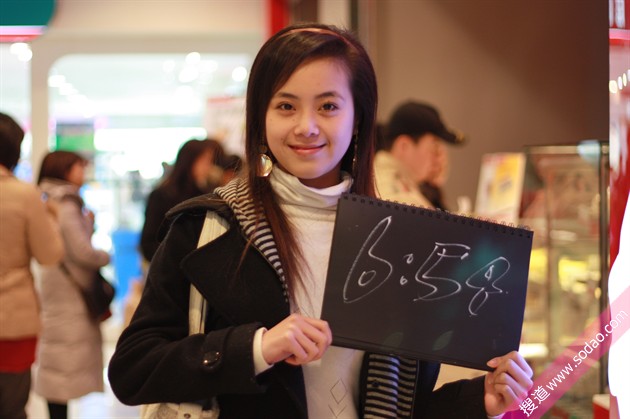 6:58
搜道网 www.sodao.com